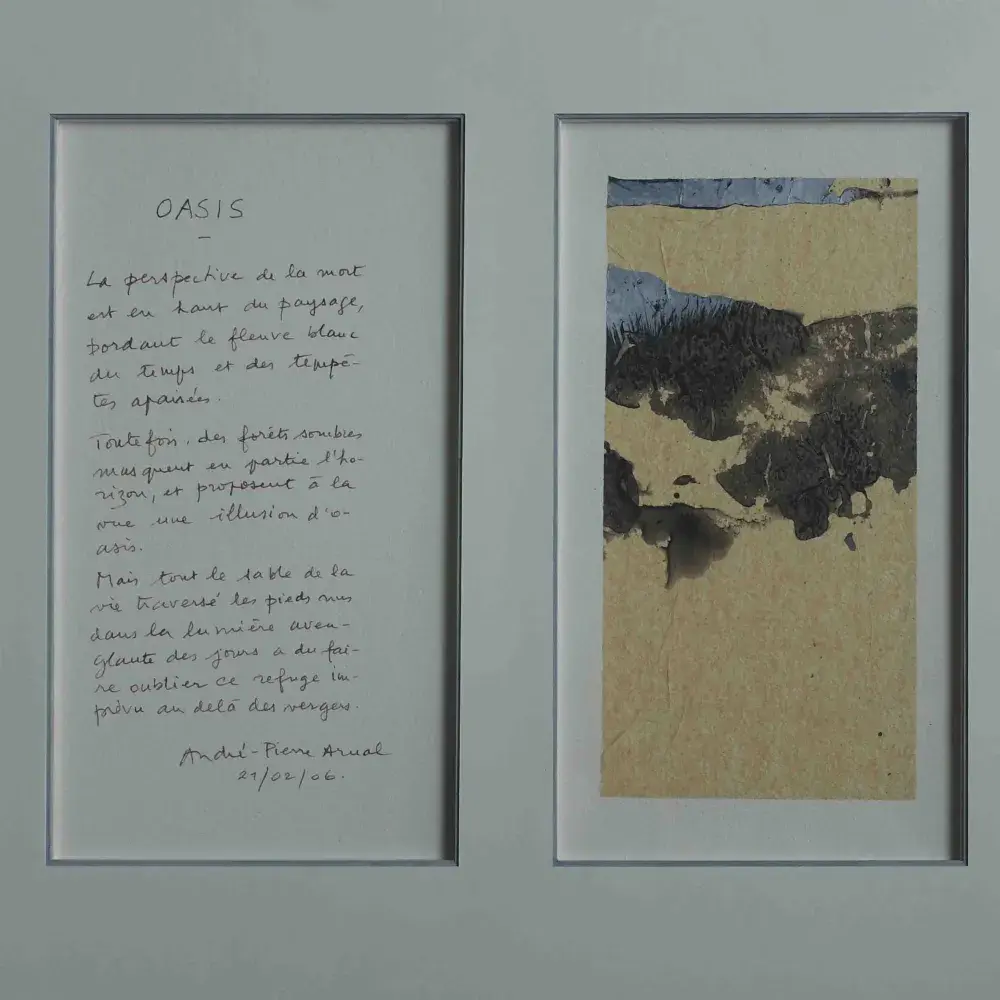 OASIS
–
La perspective de la mort
est en haut du paysage,
bordant le fleuve blanc
du temps et des tempê-
tes apaisées.
Toutefois, des forêts sombres
masquent en partie l'ho-
rizon, et proposent à la
vue une illusion d'o-
asis.
Mais tout le sable de la
vie traversé les pieds nus
dans la lumière aveu-
glante des jours a du fai-
re oublier ce refuge im-
prévu au delà des vergers.
André-Pierre Arnal
21/02/06.